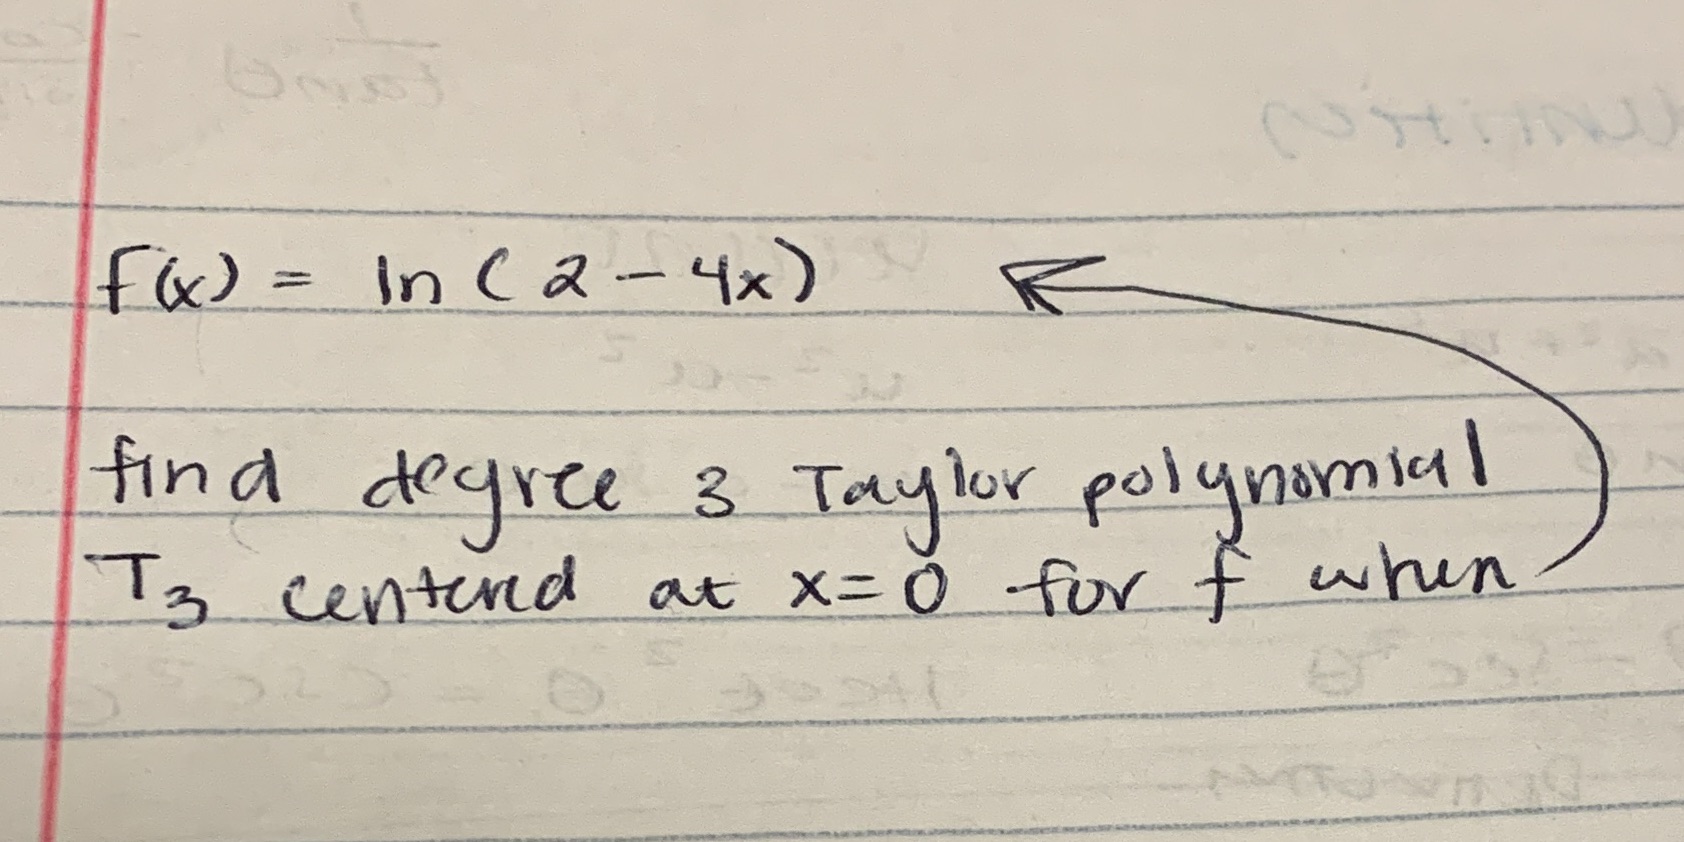 f(x) = ln(2-4x)
find degree 3 Taylor polynomial
T₃ centered at x=0 for f when